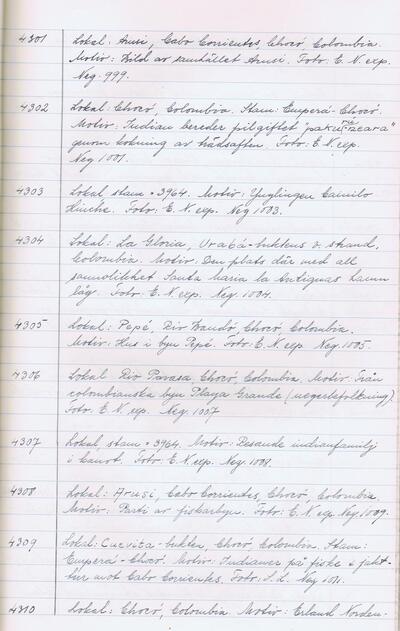 4301 Lokal: Arusi, Cabo Corrientes, Chocó, Colombia.
Motiv: Bild av samhället Arusi. Foto: E. N. exp.
Neg. 999.
4302 Lokal: Chocó, Colombia. Stam: Emperá-Chocó.
Motiv: Indian bereder pilgiftet "pakurúneara"
genom kokning av trädsaften. Foto: E. N. exp.
Neg 1001.
4303 Lokal stam = 3964. Motiv: Ynglingen Camilo
Foto: E. N. exp. Neg 1003.
4304 Lokal: La Gloria, Urabá-buktens ö. strand,
Colombia. Motiv: Den plats där med all
sannolikhet Santa Maria la Antiguas hamn
låg. Foto: E. N. exp. Neg. 1004.
4305 Lokal: Pepé, Rio Baudó, Chocó, Colombia.
Motiv: Hus i byn Pepé. Foto: E. N. exp. Neg. 1005.
4306 Lokal: Rio Pavasa, Chocó, Colombia. Motiv: Från
colombianska byn Playa Grande (negerbefolkning)
Foto: E. N. exp. Neg. 1007
4307 Lokal, stam = 3964. Motiv: Resande indianfamilj
i kanot. Foto: E. N. exp. Neg. 1008.
4308 Lokal: Arusi, Cabo Corrientes, Chocó, Colombia.
Motiv: Parti av fiskarbyn. Foto: E. N. exp. Neg. 1009.
4309 Lokal: Cuevita-bukten, Chocó, Colombia. Stam:
Emperá-Chocó. Motiv: Indianer på fiske & jakt-
tur mot Cabo Corrientes. Foto: S. L. Neg.
4310 Lokal: Chocó, Colombia. Motiv: Erland Norden-